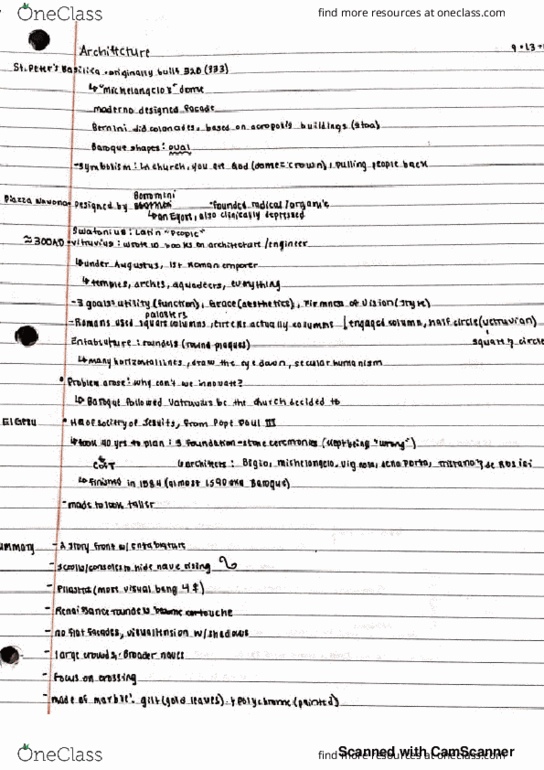 OneClass
find more resources at oneclass.com
Archittcture
9.13
St. Peter's Basilica - originally built 320 (333)
↳ "michelangelo's" dome
moderno designed facade
Bernini did colonades, based on acropolis buildings (stoa)
Baroque shapes: oval
-symbolism: In church, you are God (dome=crown), pulling people back
Borromini
Piazza Navona - Designed by "founded radical/organic
↳ an Egort, also clinically depressed
Latin "People"
≈300AD -vitruvius: wrote 10 books on architecture/engineer
↳ under Augustus, 1st Roman emporer
↳ temples, arches, aquaducts, everything
-3 goals: utility (function), Grace (aesthetics), Firmness of vision (style)
-Romans used square columns, Greeks actually columns engaged column, half circle (vetruvian)
square & circle
Entablature: roundels (round plaques)
↳ many horizontal lines, draw the eye down, secular humanism
• Problem arose: why can't we innovate?
↳ Baroque followed Vatruvius bc the church decided to
El Gesu • HQ of society of Jesuits, from Pope Paul III
↳ took 40 yrs to plan: 3 foundation-stone ceremonies (kept being "wrong")
cost architects: Bigio, michelangelo, vignola, della Porta, tristano & de Rosisi
↳ Finished in 1584 (almost 1590 aka Baroque)
-made to look taller
ummary - 2 story front w/ entablature
- scrolls/consoles to hide nave rising
- Pilastra (more visual bang 4 $)
- Renaissance roundels become cartouche
- no flat facades, visual tension w/ shadows
- large crowds: Broader naves
- Focus on crossing
- made of marble, gilt (gold leaves) & polychrome (painted)
Scanned with CamScanner
OneClass
find more resources at oneclass.com